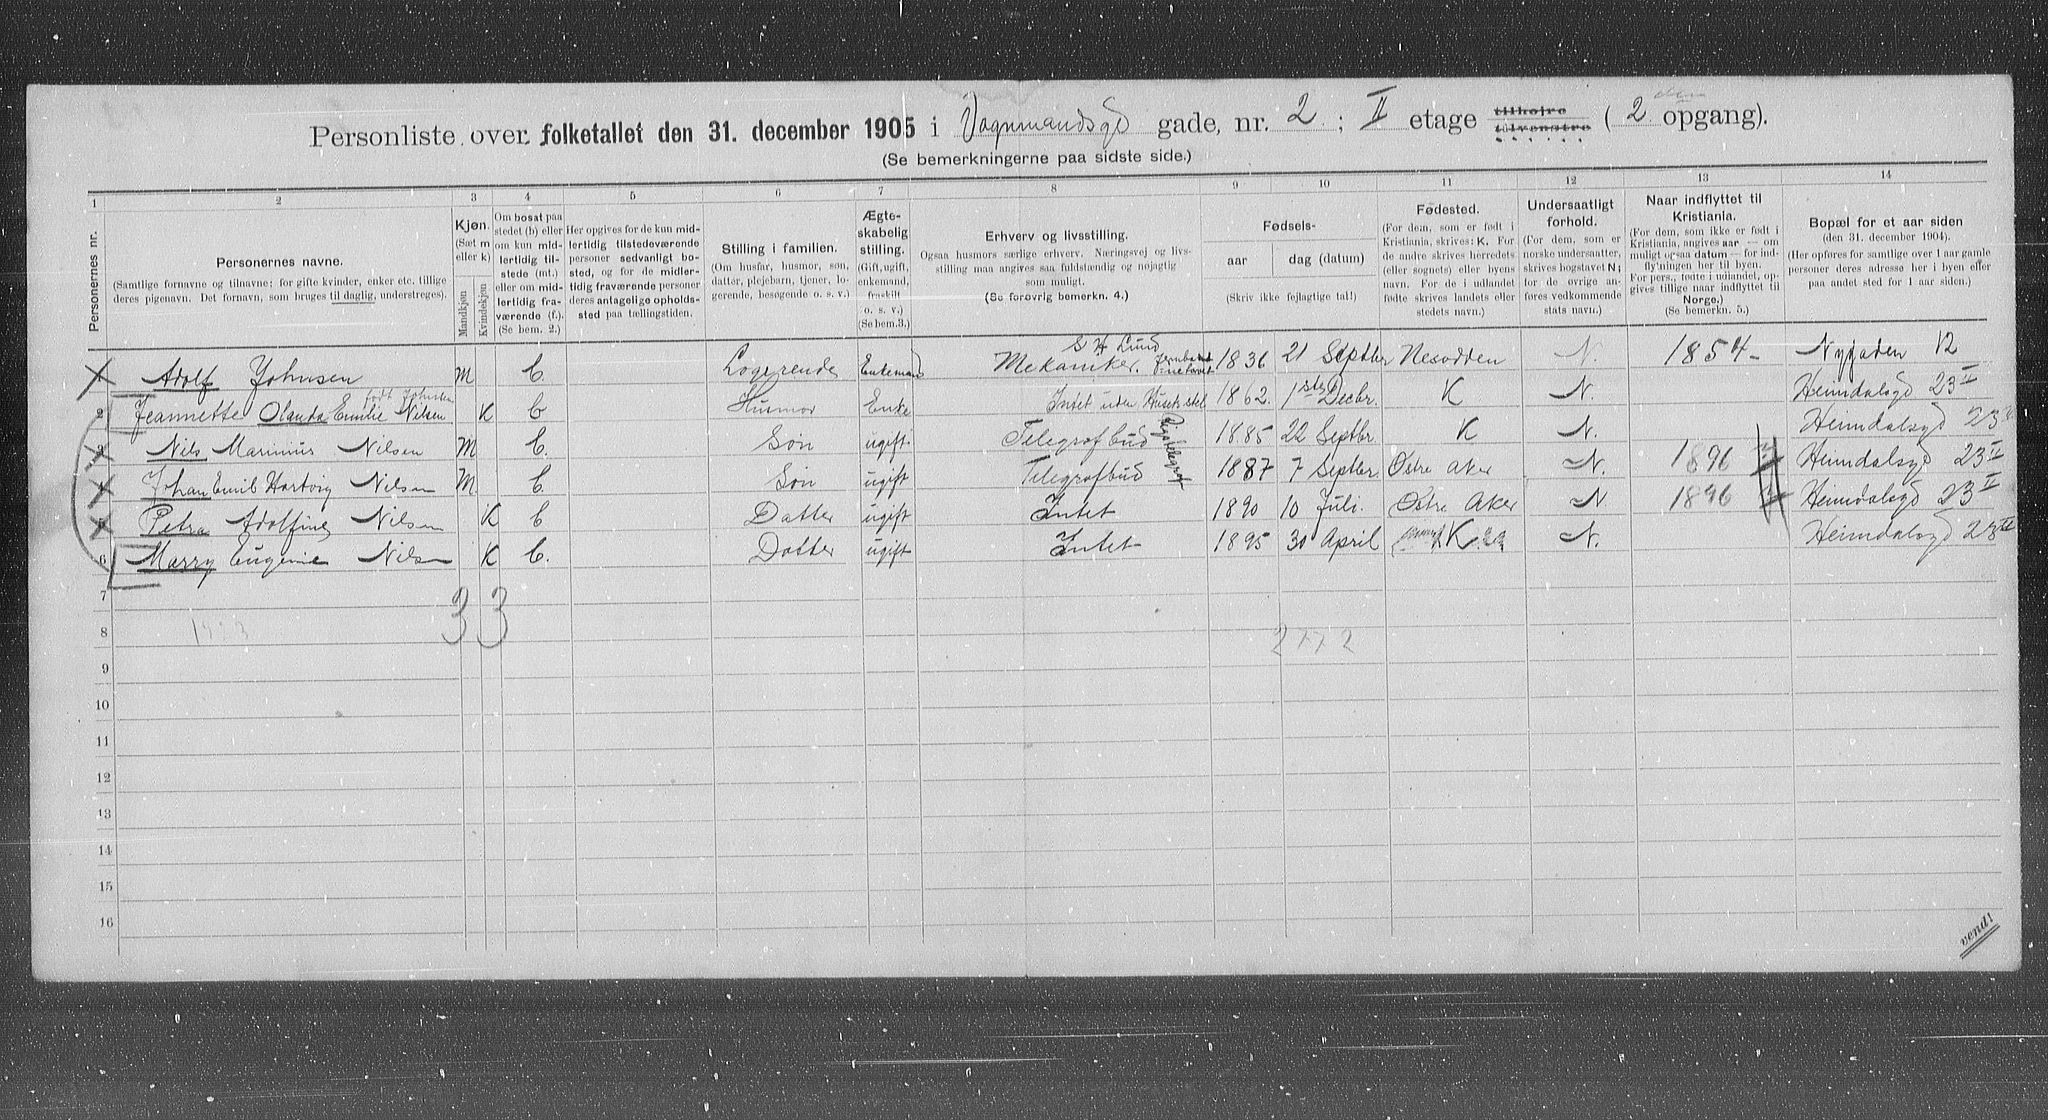 Personliste over folketallet den 31. december 1905 i Vognmandsgd gade, nr. 2 ; II etage tilhøjre tilvenstre ( 2 den opgang).
(Se bemerkningerne paa sidste side.)
1 2 3 4 5 6 7 8 9 10 11 12 13 14
Personernes nr.
Personernes navne.
(Samtlige fornavne og tilnavne; for gifte kvinder, enker etc. tillige
deres pigenavn. Det fornavn, som bruges til daglig, understreges).
Kjøn.
(Sæt m
eller k)
Mandkjøn
Kvindekjøn
Om bosat paa
stedet (b) eller
om kun mid-
lertidig til-
stede (mt.)
eller om mid-
lertidig fra-
værende (f.).
(Se bem. 2.)
Her opgives for de kun mid-
lertidig tilstedeværende
personer sedvanligt bo-
sted, og for de midler-
tidig fraværende personer
deres antagelige opholds-
sted paa tællingstiden.
Stilling i familien.
(Om husfar, husmor, søn,
datter, plejebarn, tjener, lo-
gerende, besøgende o. s. v.)
Ægte-
skabelig
stilling.
(Gift, ugift,
enkemand,
fraskilt
o. s. v.)
(Se bem.3.)
Erhverv og livsstilling.
Ogsaa husmors særlige erhverv. Næringsvej og livs-
stilling maa angives saa fuldstændig og nøjagtig
som muligt.
(Se forøvrig bemerkn. 4.)
Fødsels-
aar dag (datum)
(Skriv ikke fejlagtige tal!)
Fødested.
(For dem, som er født i
Kristiania, skrives: K. For
de andre skrives herredets
(eller sognets) eller byens
navn. For de i udlandet
fødte skrives landets eller
stedets navn.)
Undersaatligt
forhold.
(For dem, som er
norske undersaatter,
skrives bogstavet N;
for de øvrige an-
føres vedkommende
stats navn.)
Naar indflyttet til
Kristiania.
(For dem, som ikke er født i
Kristiania, angives aar — om
muligt ogsaa datum — for ind-
flytningen her til byen.
For pers., fødte i udlandet, op-
gives tillige naar indflyttet til
Norge.)
(Se bemerkn. 5.)
Bopæl for et aar siden
(den 31. december 1904).
(Her opføres for samtlige over 1 aar gamle
personer deres adresse her i byen eller
paa andet sted for 1 aar siden.)
Adolf Johnsen M b. Logerende Enkemand Mekaniker. S H Lund 1836 21 Septbr Nesodden N. 1854 - Nygaden 12
født Johnsen
2 Jeannette Olauda Emilie Nilsen K b Husmor Enke Intet uden Husets stel 1862. 1ste Decbr. K N. Heimdalsgd 23 II
3 Nils Marinius Nilsen M b. Søn ugift. Telegrafbud Rigstelegraf 1885 22 Septbr K N. Heimdalsgd 23 II
4 Johan Emil Hartvig Nilsen M. b. Søn ugift Telegrafbud 1887 7 Septbr Østre Aker N. 1896 Heimdalsgd 23 II
5 Petra Adolfine Nilsen K b Datter ugift Intet 1890 10 Juli. Østre Aker N 1896 Heimdalsgd 23 II
6 Marry Eugenie Nilsen K b. Datter ugift Intet 1895 30 April K N. Heimdalsgd 23 II
7
3 3
8 2772
9
10
11
12
13
14
15
16
vend!